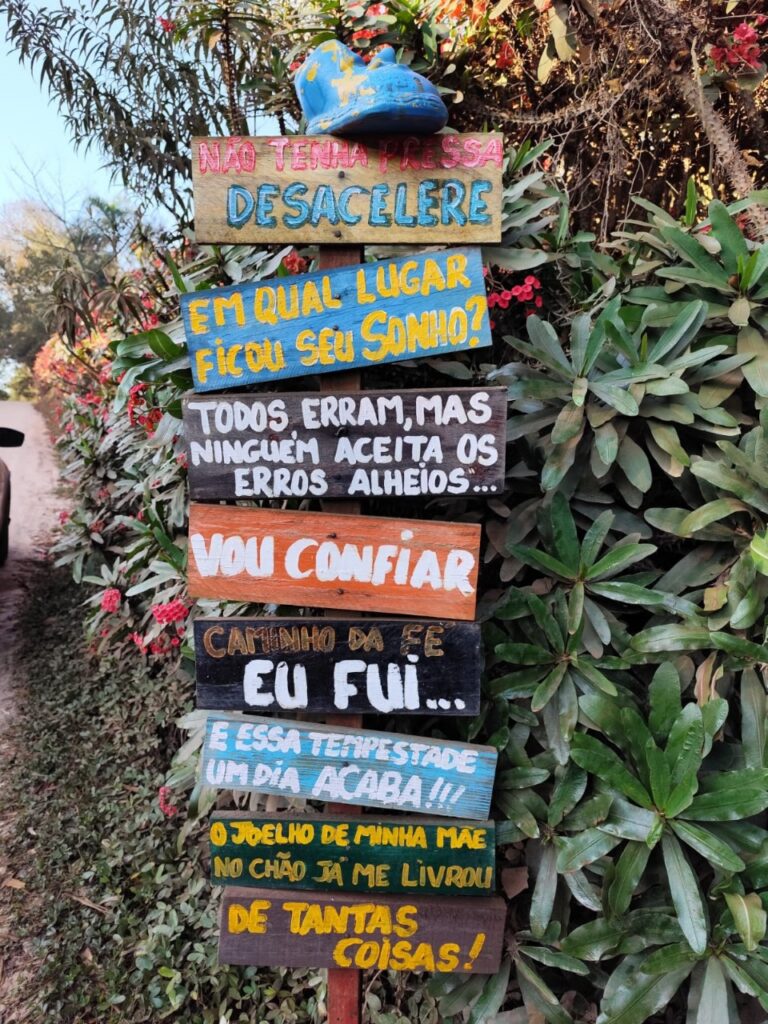 NÃO TENHA PRESSA
DESACELERE
EM QUAL LUGAR
FICOU SEU SONHO?
TODOS ERRAM, MAS
NINGUÉM ACEITA OS
ERROS ALHEIOS...
VOU CONFIAR
CAMINHO DA FÉ
EU FUI...
E ESSA TEMPESTADE
UM DIA ACABA!!!
O JOELHO DE MINHA MÃE
NO CHÃO JÁ ME LIVROU
DE TANTAS
COISAS!